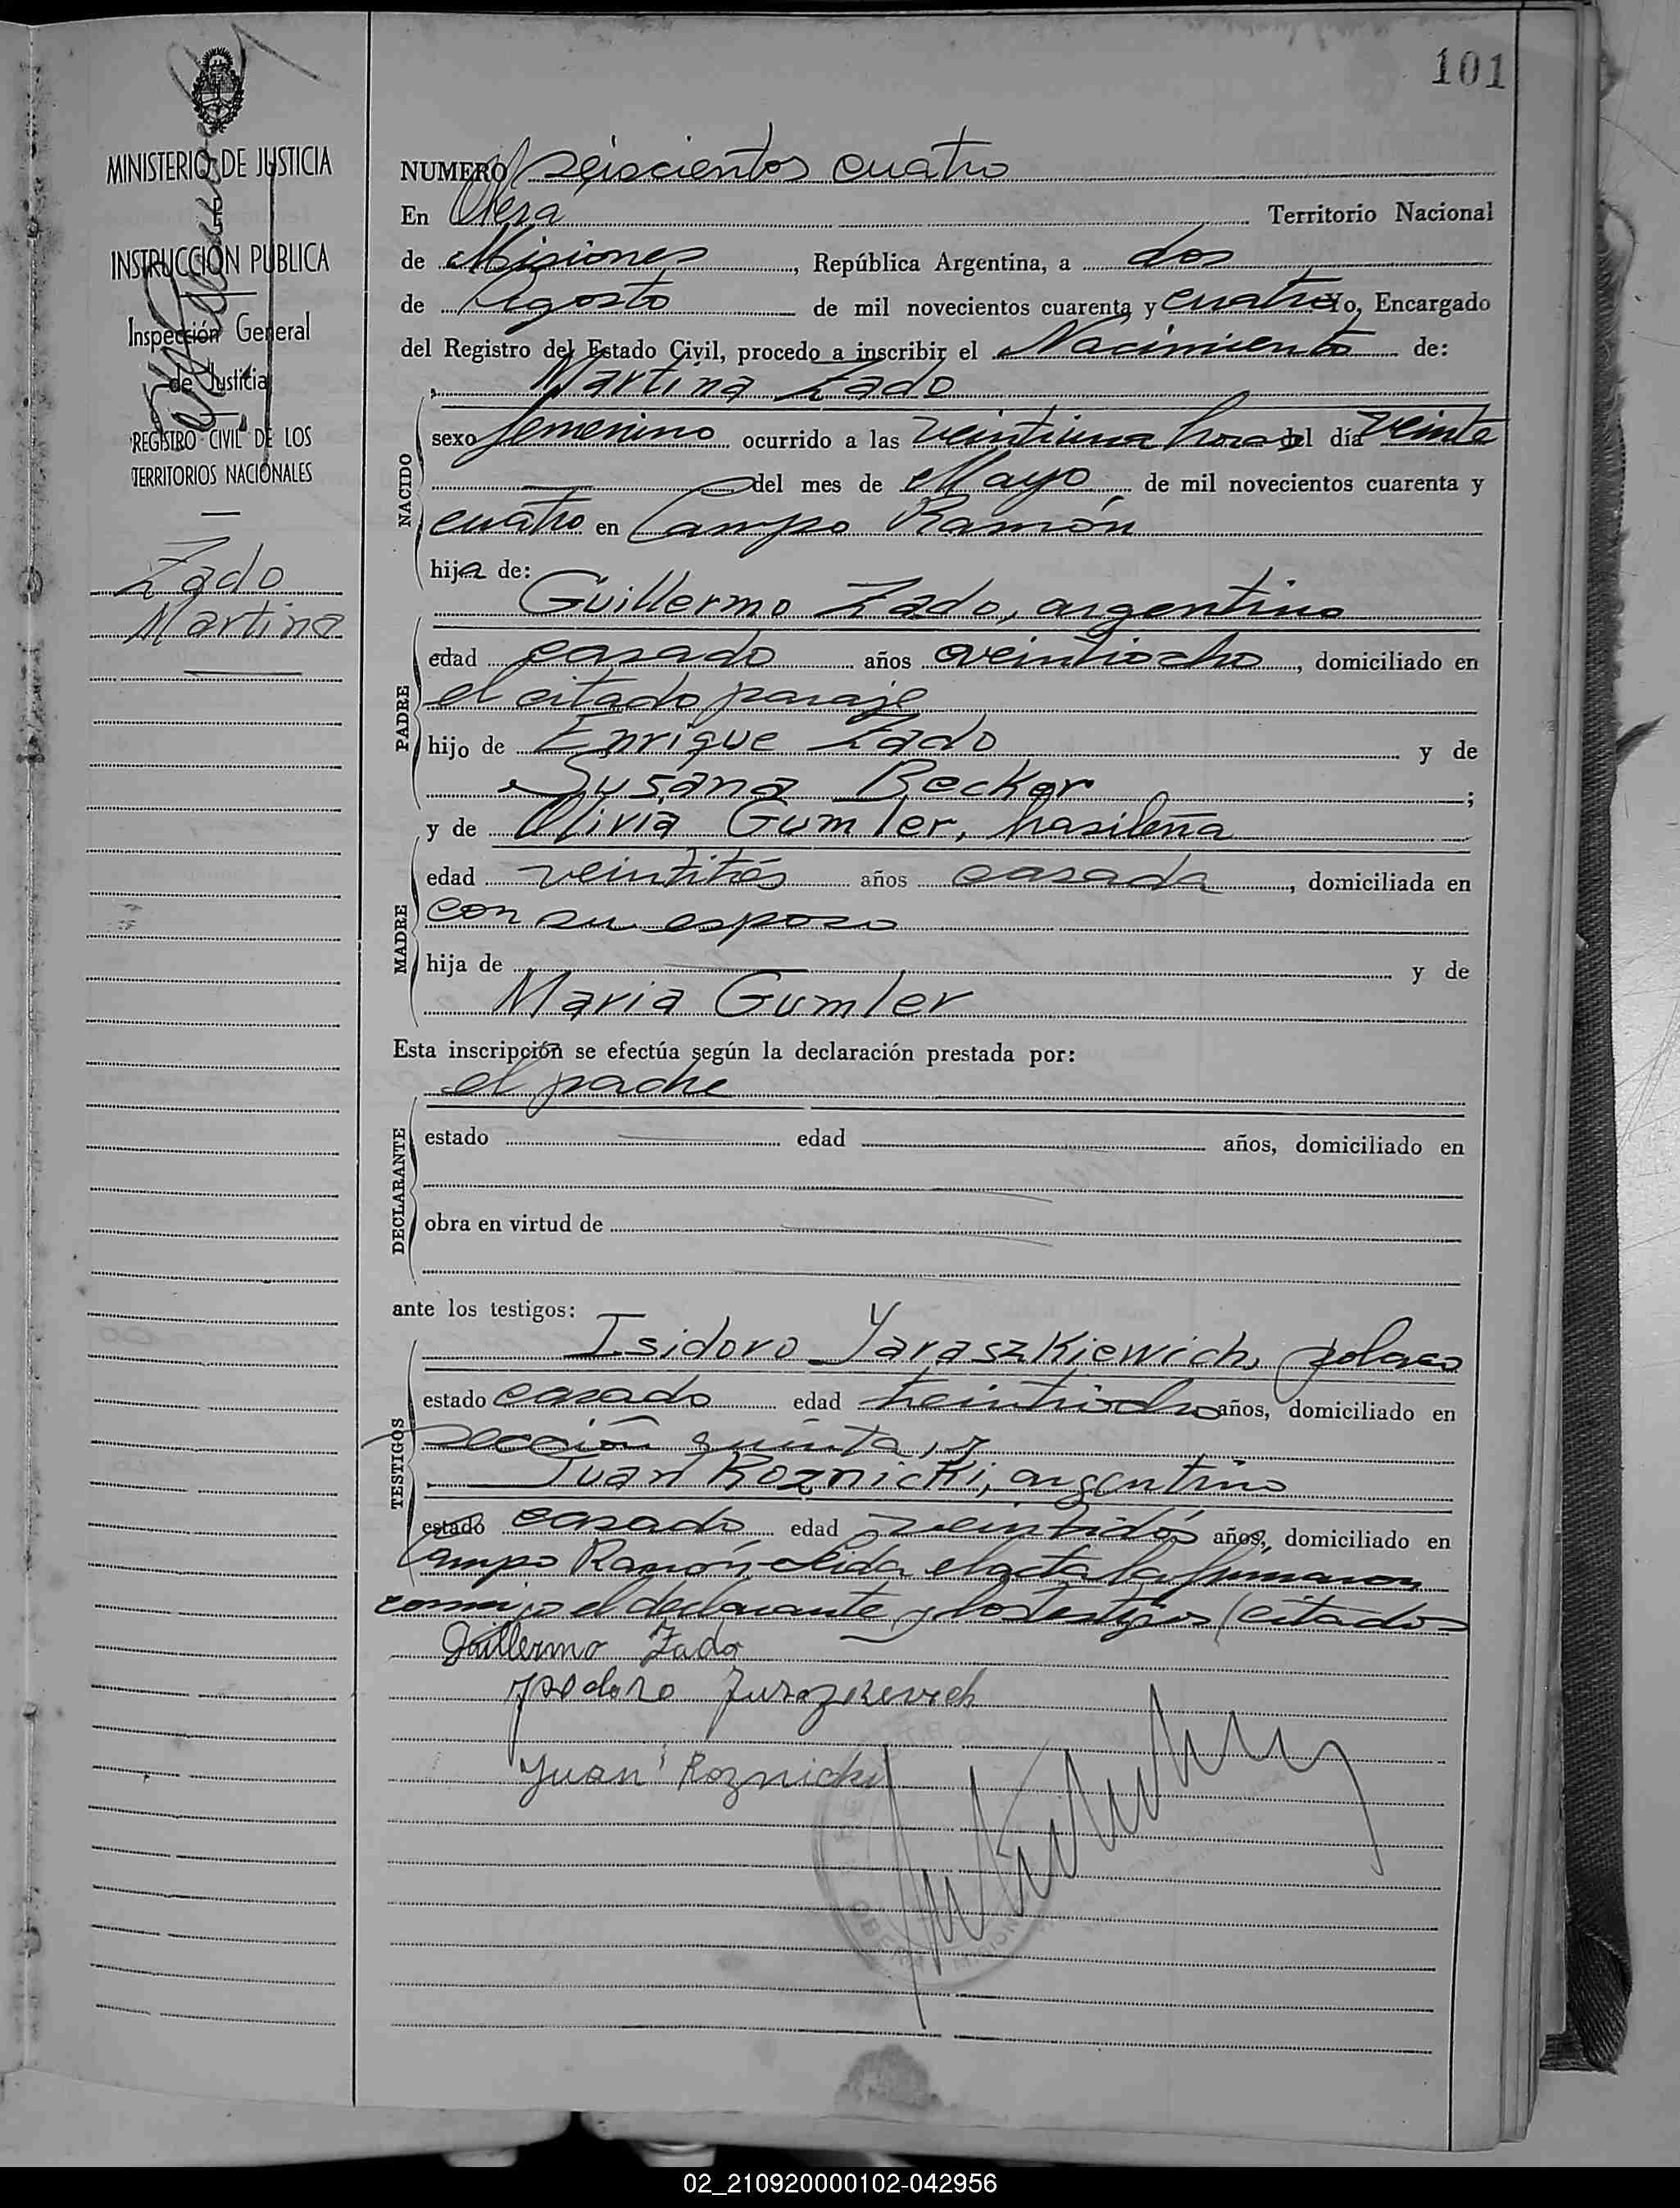 101
MINISTERIO DE JUSTICIA
INSTRUCCIÓN PUBLICA
Inspección General
de Justicia
REGISTRO CIVIL DE LOS
TERRITORIOS NACIONALES
Zado
Martina
NUMERO seiscientos cuatro
En Obera Territorio Nacional
de Misiones, República Argentina, a dos
de Agosto de mil novecientos cuarenta y cuatro Yo, Encargado
del Registro del Estado Civil, procedo a inscribir el Nacimiento de:
Martina Zado
NACIDO
sexo femenino ocurrido a las veintiuna horas del día veinte
del mes de Mayo de mil novecientos cuarenta y
cuatro en Campo Ramón
hija de:
Guillermo Zado, argentino
PADRE
edad casado años veintiocho, domiciliado en
el citado paraje
hijo de Enrique Zado y de
Susana Becker ;
y de Olivia Gumler, brasileña
MADRE
edad veintitrés años casada, domiciliada en
con su esposo
hija de y de
Maria Gumler
Esta inscripción se efectúa según la declaración prestada por:
el padre
DECLARANTE
estado edad años, domiciliado en
obra en virtud de
ante los testigos:
Isidoro Yaraszkiewich, polaco
TESTIGOS
estado casado edad años, domiciliado en
sección quinta, y
Juan Roznicki, argentino
estado casado edad veintidós años, domiciliado en
Campo Ramón - Leida el acta la firmaron
conmigo el declarante y los testigos citados
Guillermo Zado
Juan Roznicki
02_210920000102-042956